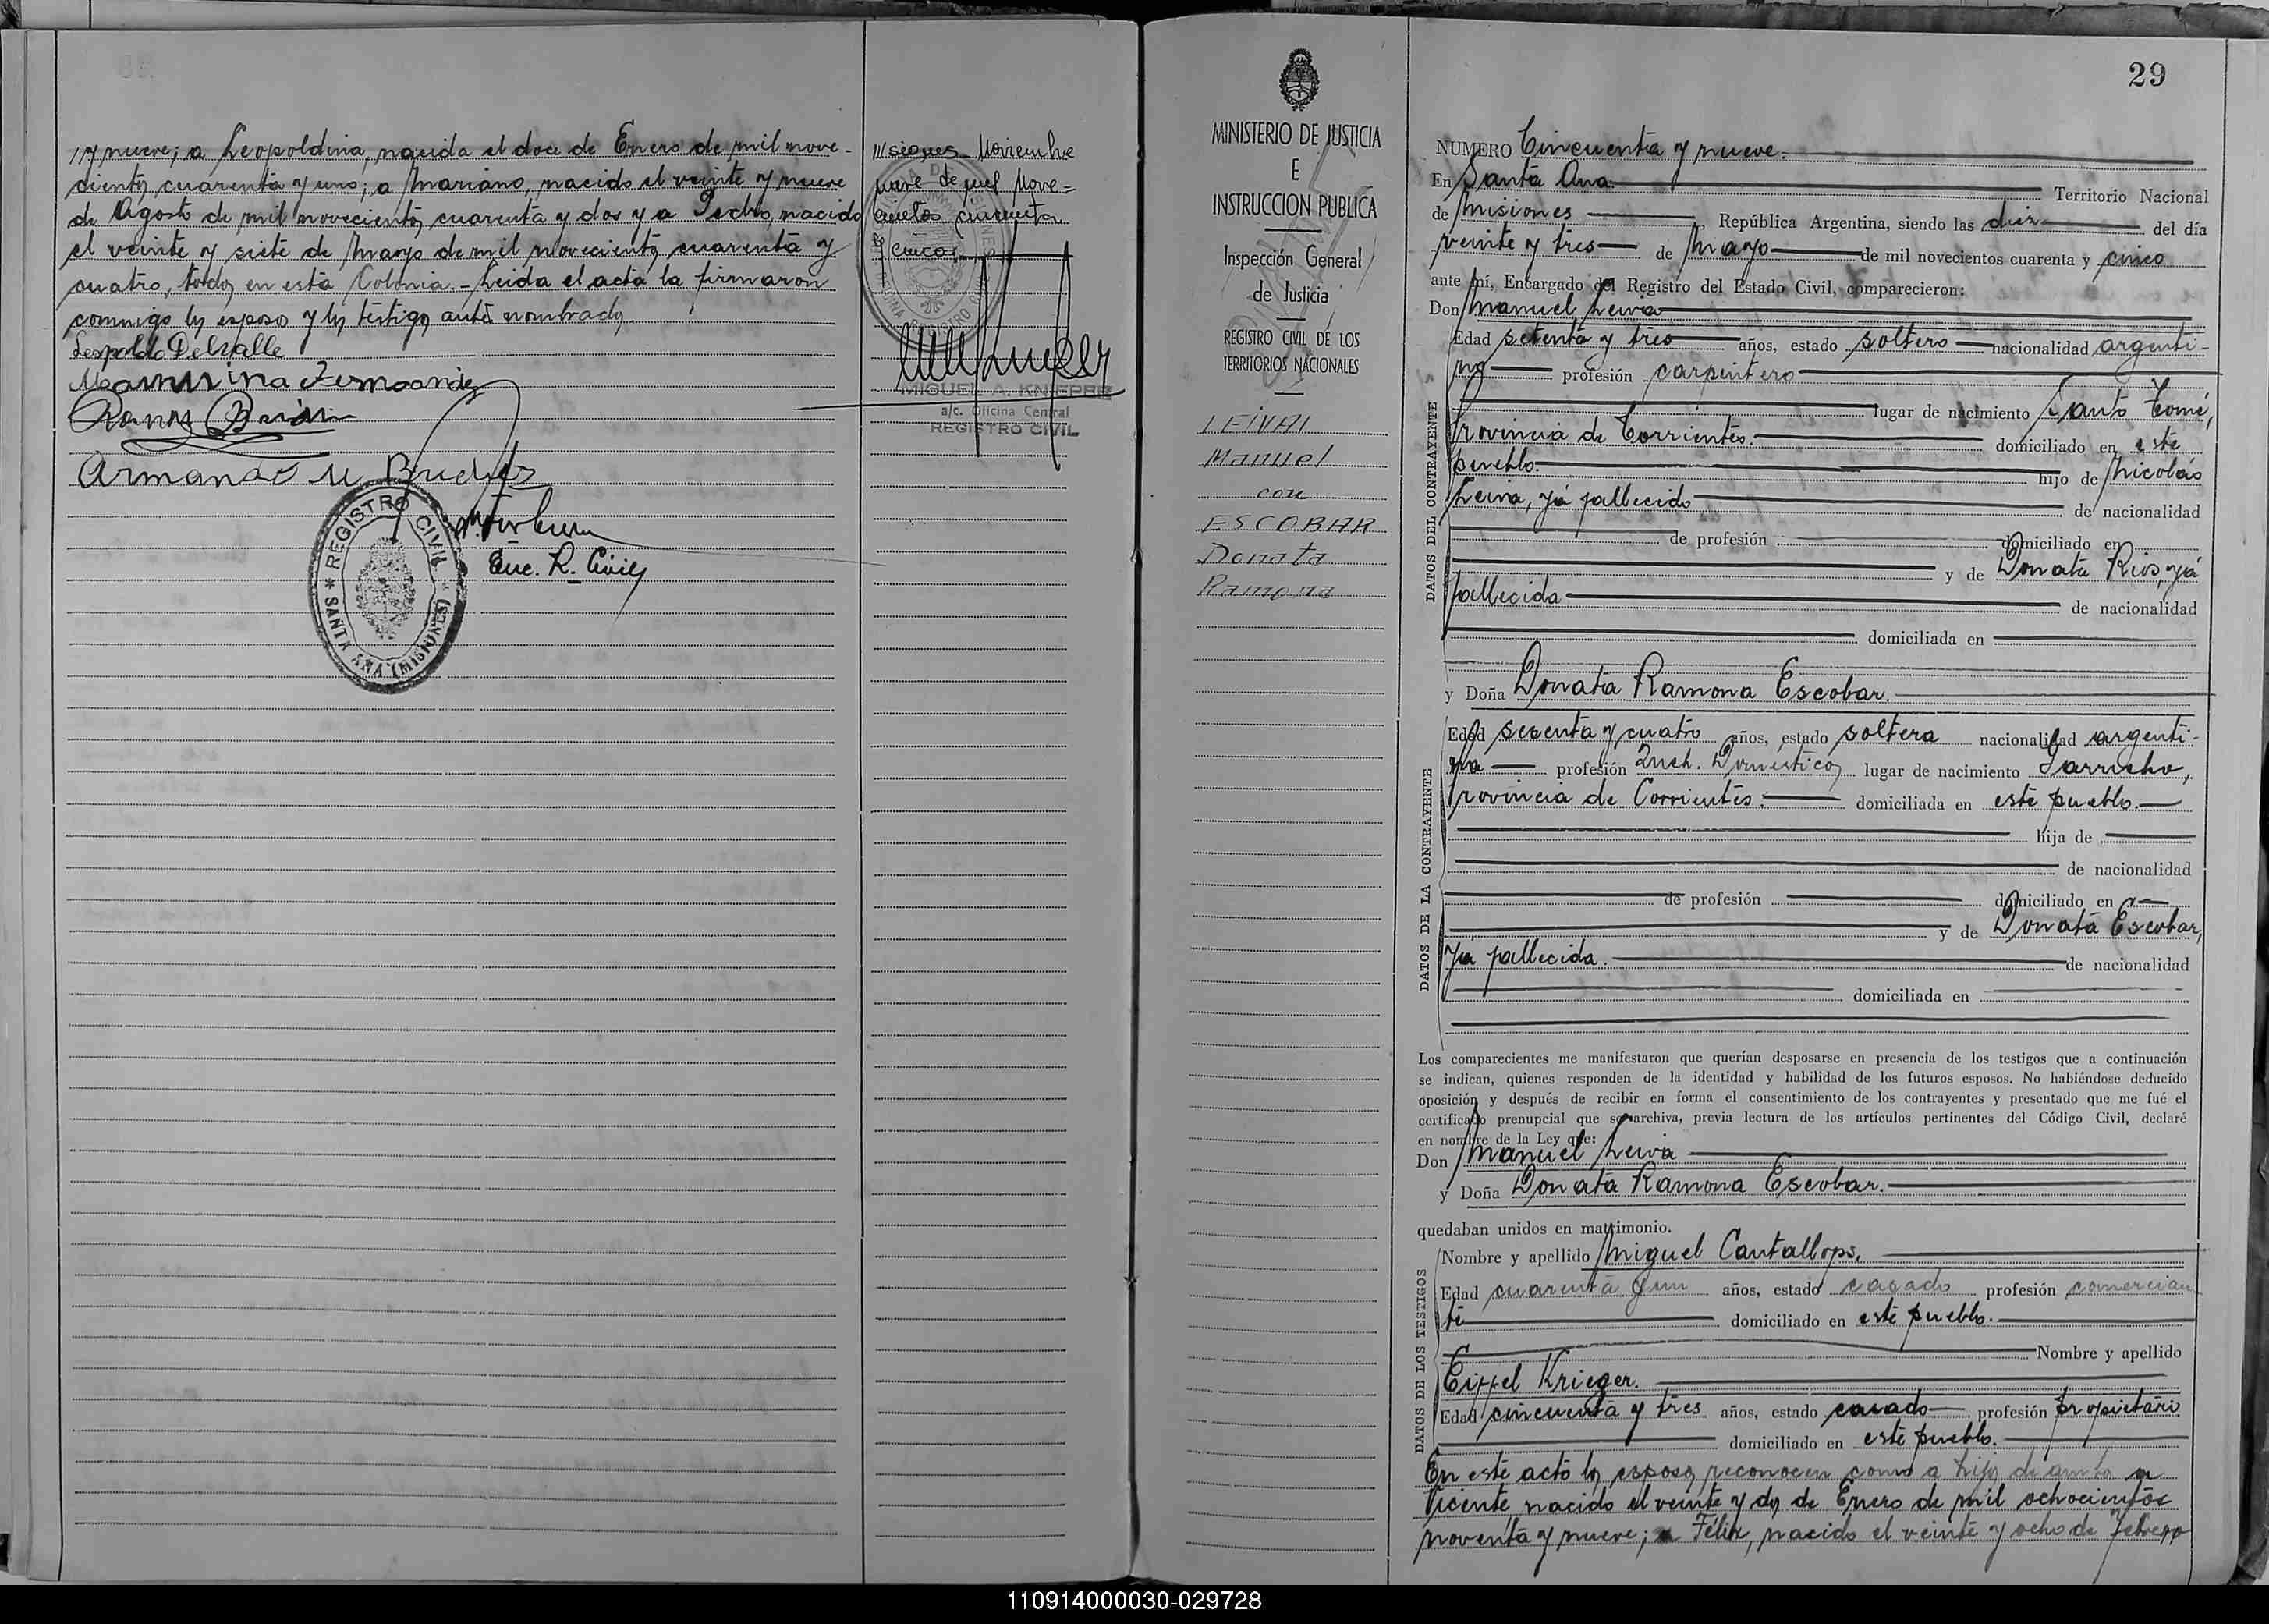 y nueve; a Leopoldina, nacida el doce de Enero de mil nove-
cientos cuarenta y uno; a Mariano, nacido el veinte y nueve
de Agosto de mil novecientos cuarenta y dos y a Pedro, nacido
el veinte y siete de Mayo de mil novecientos cuarenta y
cuatro, todos en esta Colonia.- Leida el acta la firmaron
conmigo los esposos y los testigos antes nombrados.
Leopoldo Delvalle
Fernandez
Ramon
Armando M.
Enc. R. Civil
REGISTRO CIVIL
* SANTA ANA (MISIONES) *
Misiones Noviembre
nueve de mil Nove=
cientos cincuenta
y cinco
MIGUEL A. KNIEPRE
a/c. Oficina Central
REGISTRO CIVIL
MINISTERIO DE JUSTICIA
E
INSTRUCCION PUBLICA
Inspección General
de Justicia
REGISTRO CIVIL DE LOS
TERRITORIOS NACIONALES
LEIVA
Manuel
con
ESCOBAR
Donata
Ramona
29
NUMERO Cincuenta y nueve.
En Santa Ana. Territorio Nacional
de Misiones, República Argentina, siendo las diez del día
veinte y tres de Mayo de mil novecientos cuarenta y cinco
ante mí, Encargado del Registro del Estado Civil, comparecieron:
Don Manuel Leiva
DATOS DEL CONTRAYENTE
Edad setenta y tres años, estado soltero nacionalidad argenti-
no profesión carpintero
lugar de nacimiento Santo Tomé,
Provincia de Corrientes. domiciliado en este
pueblo. hijo de Nicolás
Leiva, ya fallecido de nacionalidad
de profesión domiciliado en
y de Donata Rios, ya
fallecida de nacionalidad
domiciliada en
y Doña Donata Ramona Escobar.
DATOS DE LA CONTRAYENTE
Edad sesenta y cuatro años, estado soltera nacionalidad argenti-
na profesión Queh. Domésticos lugar de nacimiento Garruchos,
Provincia de Corrientes. domiciliada en este pueblo.
hija de
de nacionalidad
de profesión domiciliado en
y de Donata Escobar,
ya fallecida. de nacionalidad
domiciliada en
Los comparecientes me manifestaron que querían desposarse en presencia de los testigos que a continuación
se indican, quienes responden de la identidad y habilidad de los futuros esposos. No habiéndose deducido
oposición y después de recibir en forma el consentimiento de los contrayentes y presentado que me fué el
certificado prenupcial que se archiva, previa lectura de los artículos pertinentes del Código Civil, declaré
en nombre de la Ley que:
Don Manuel Leiva
y Doña Donata Ramona Escobar.
quedaban unidos en matrimonio.
DATOS DE LOS TESTIGOS
Nombre y apellido Miguel Cantallops,
Edad cuarenta y un años, estado casado profesión comercian
te domiciliado en este pueblo.
Nombre y apellido
Eiffel Krieger.
Edad cincuenta y tres años, estado casado profesión propietario
domiciliado en este pueblo.
En este acto los esposos reconocen como a hijos de ambos a
Vicente, nacido el veinte y dos de Enero de mil ochocientos
noventa y nueve; a Félix, nacido el veinte y ocho de Febrero
110914000030-029728